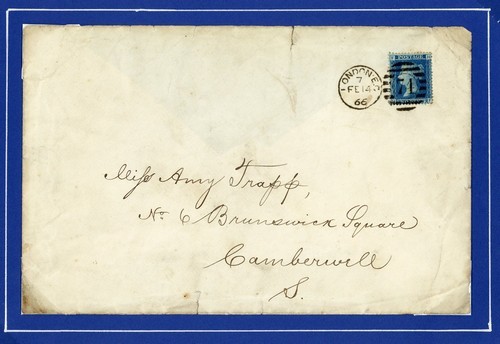 POSTAGE
LONDON E.C
7
FE 14
66
71
Miſs Amy Trapp,
No. 6 Brunswick Square
Camberwell
S.